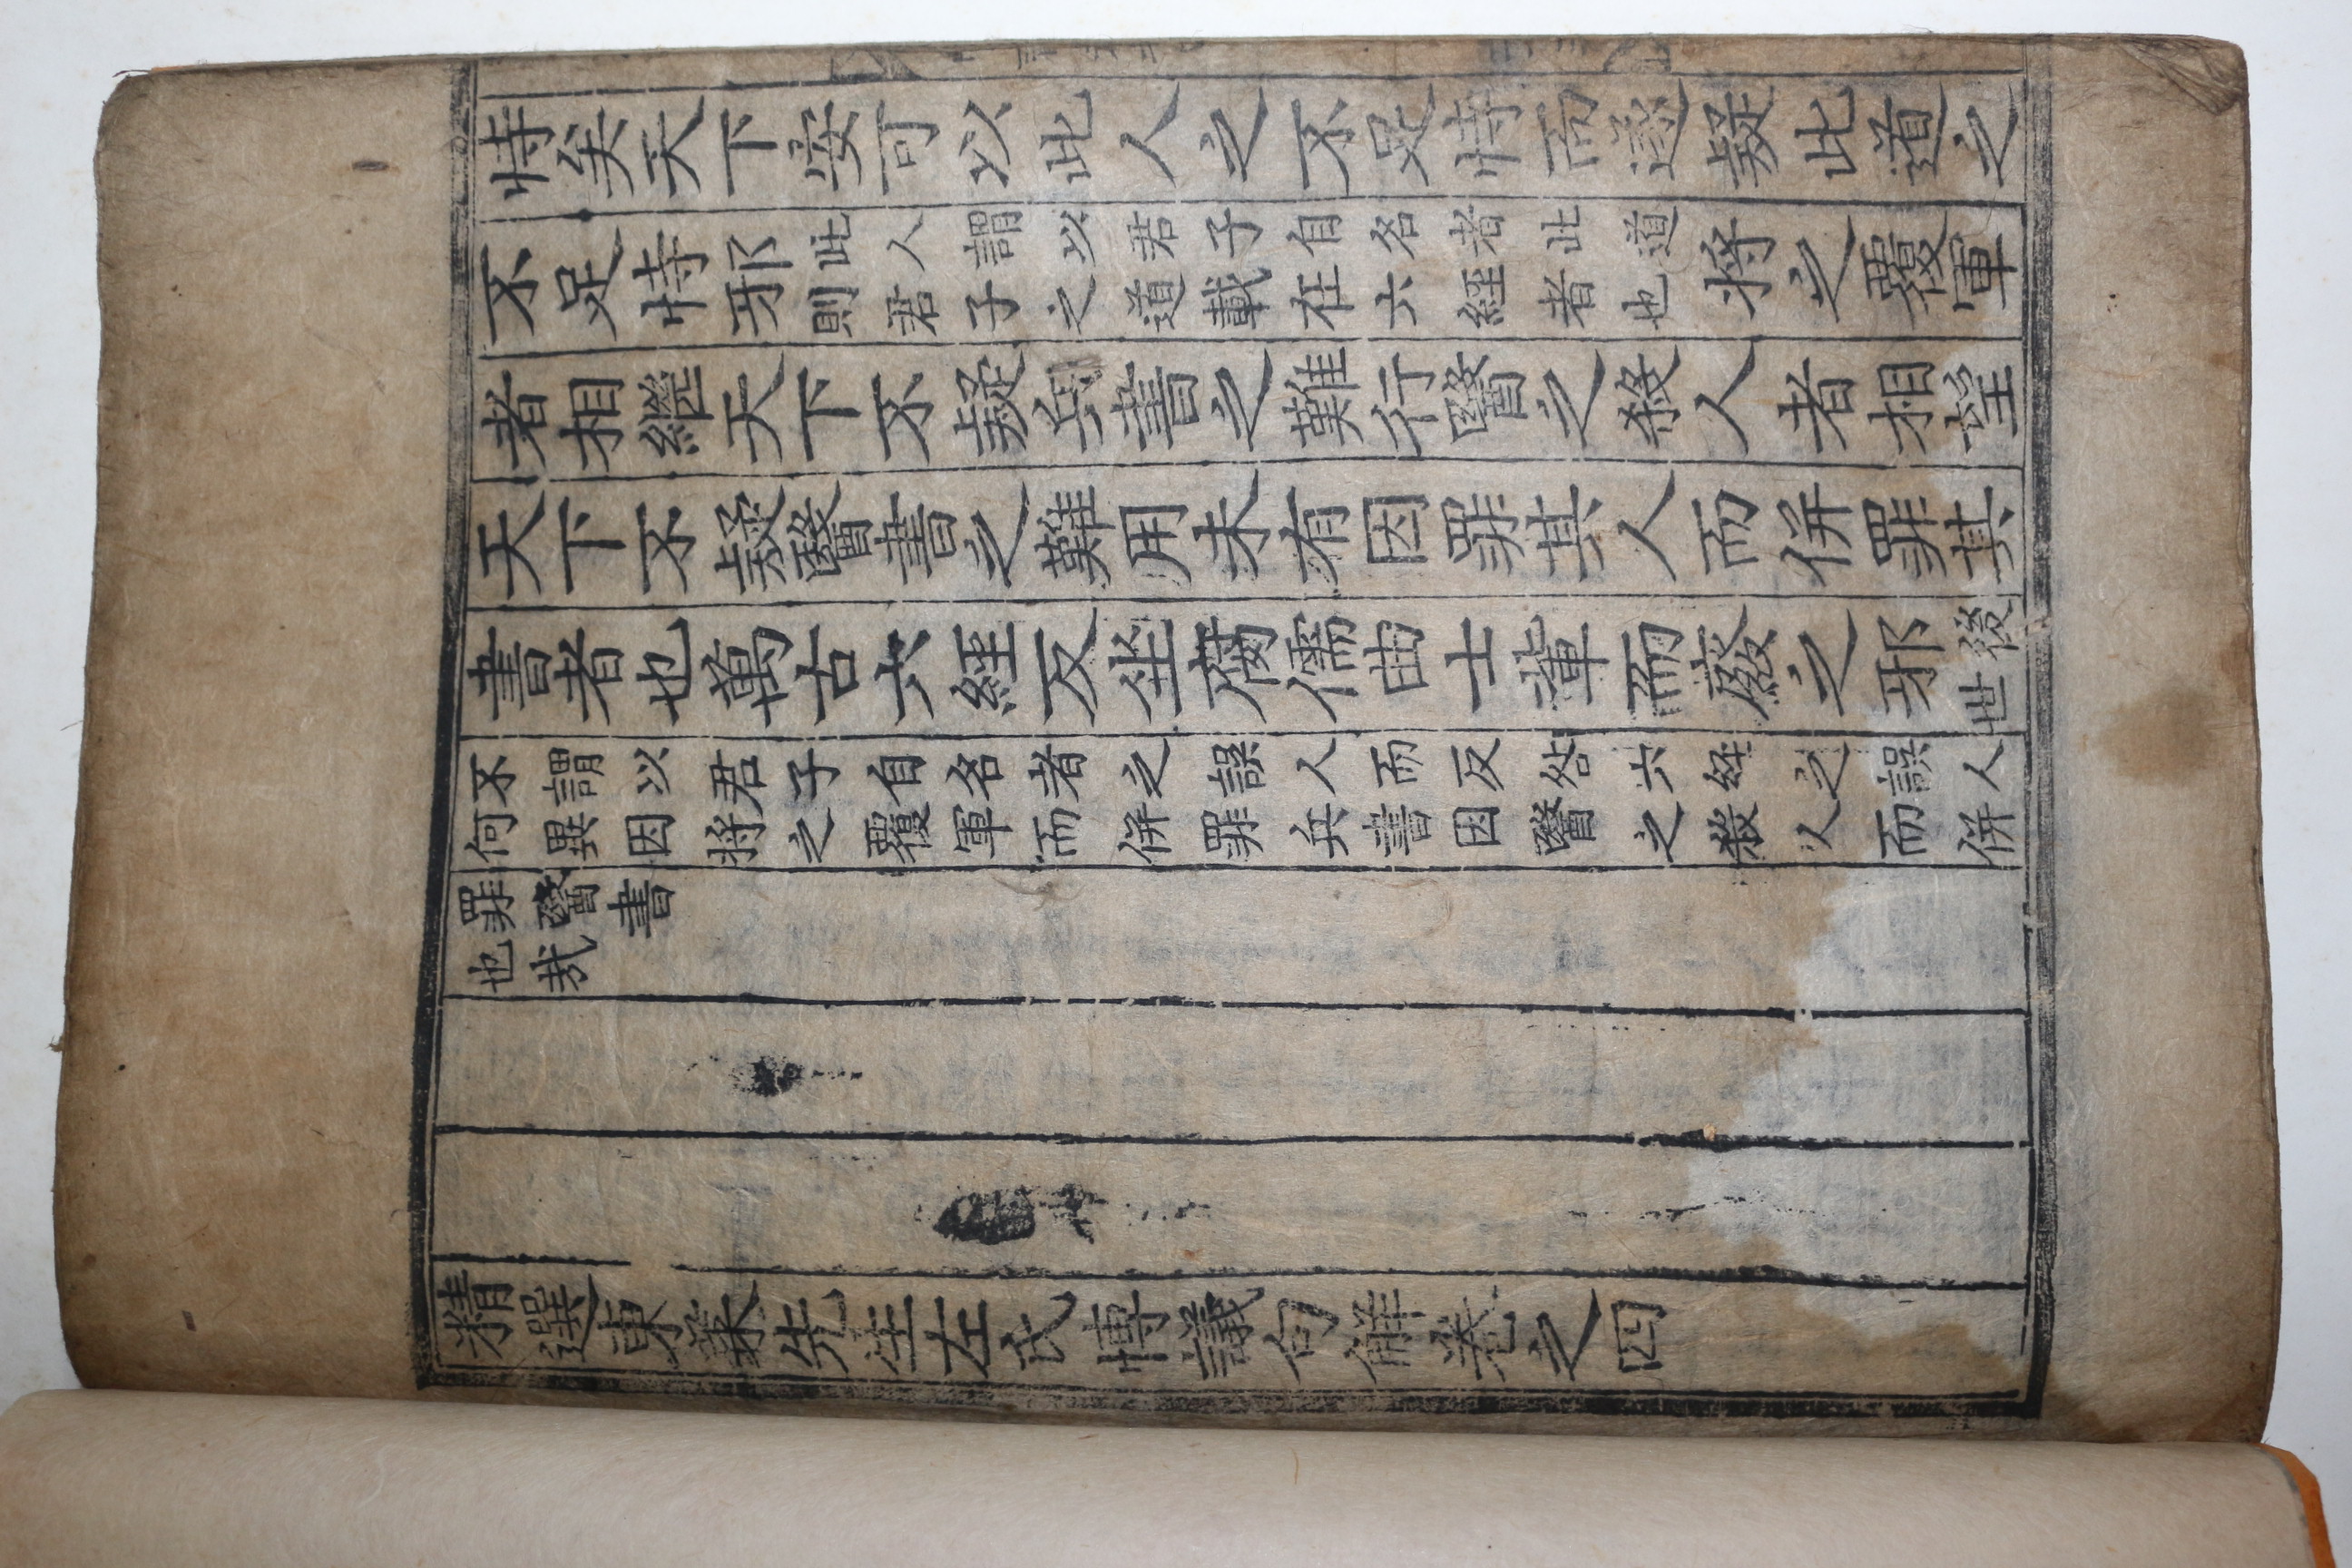 恃矣天下安可以此人之不足恃而遂疑此道之
不足恃邪
此人謂以君子自名者此道
則君子之道載在六經者也
將之覆軍
者相繼天下不疑兵書之難行醫之殺人者相望
天下不疑醫書之難用未有因罪其人而併罪其
書者也萬古六經反坐腐儒曲士輩而廢之邪
後
世
不謂以君子自名者之誤人而反咎六経之誤人
何異因將之覆軍而併罪兵書因醫之殺人而併
罪醫書
也哉
精選東萊先生左氏博議句解卷之四